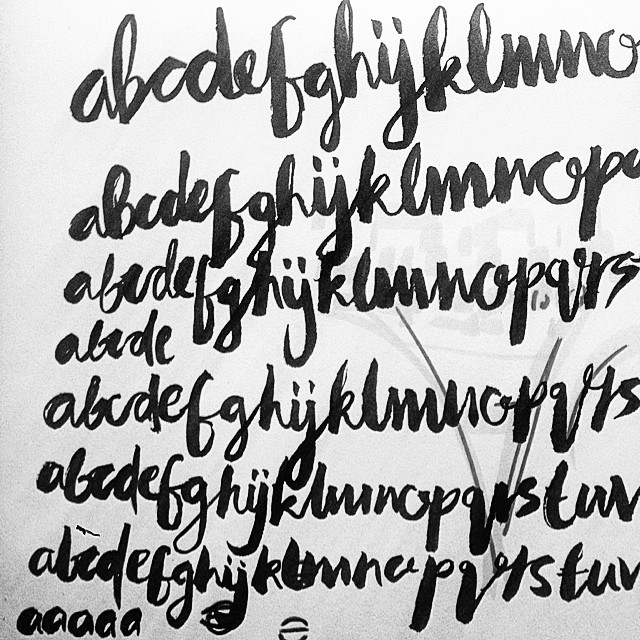 abcdefghijklmno
abcdefghijklmnopq
abcdefghijklmnopqrst
abcde
abcdefghijklmnopqrs
abcdefghijklmnopqrstuv
abcdefghijklmnopqrstuv
aaaaa